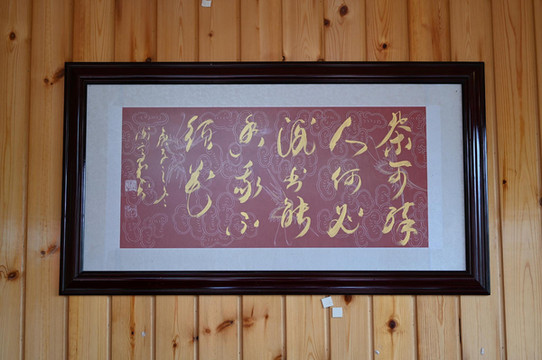 茶可醉
人何必
酒书能
香我不
须花